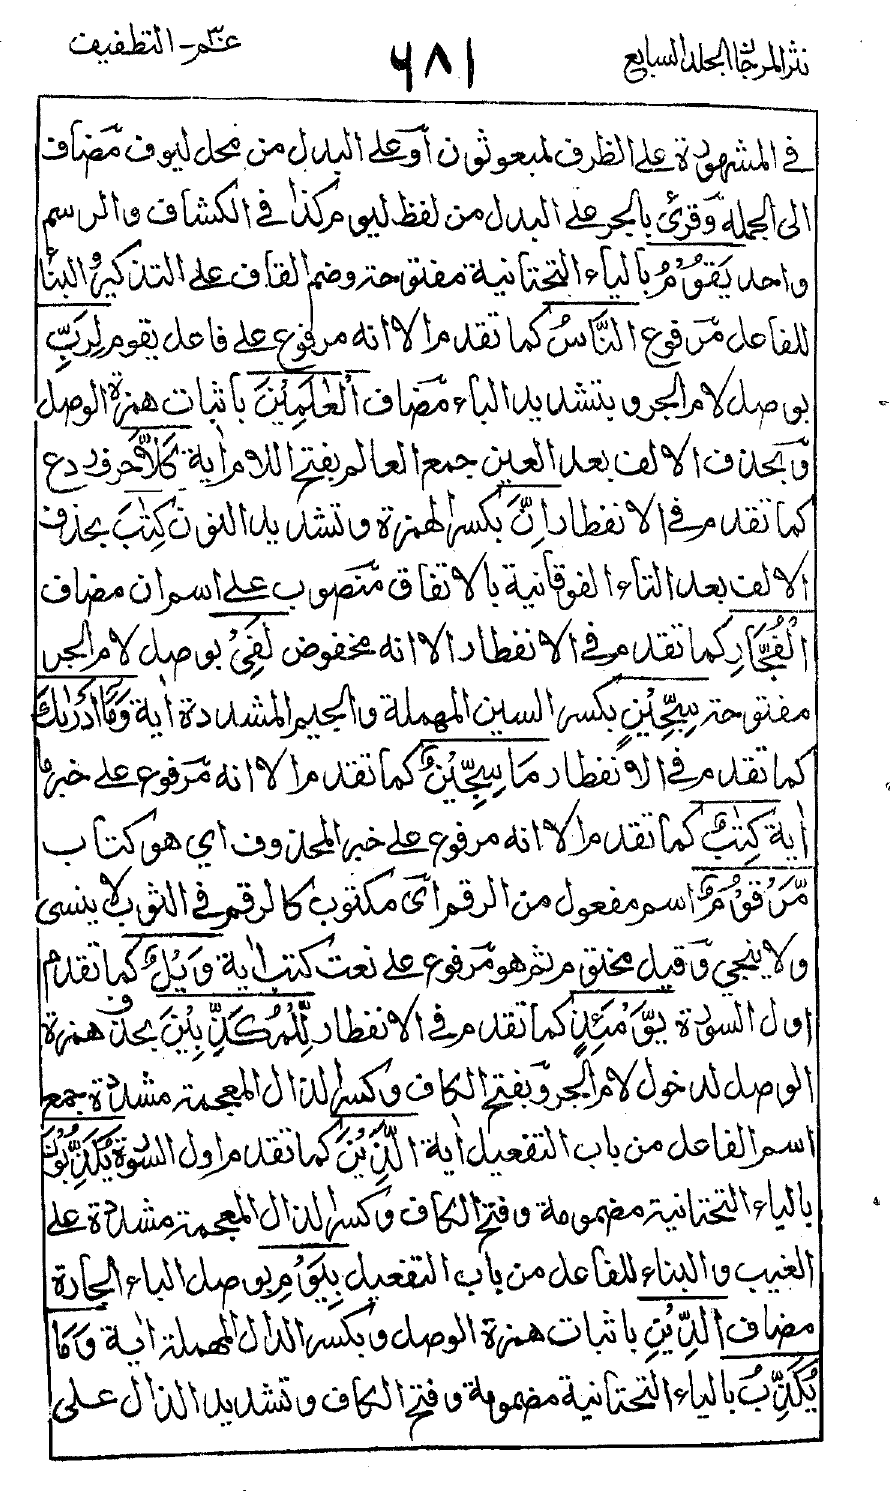 نثر المرجان الجلد السابع
٦٨١
عمّ - التطفيف
في المشهورة على الظرف لمبعوثون أو على البدل من محل ليوم مضاف
الى الجملة وقرئ بالجر على البدل من لفظ ليوم كذا في الكشاف والرسم
واحد يَقُوْمُ بالياء التحتانية مفتوحة وضم القاف على التذكير والبناء
للفاعل مرفوع النَّاسُ كما تقدم الا انه مرفوع على فاعل يقوم لِرَبِّ
بوصل لام الجر وبتشديد الباء مضاف الْعٰلَمِيْنَ باثبات همزة الوصل
وبحذف الالف بعد العين جمع العالم بفتح اللام اٰية كَلَّا حرف ردع
كما تقدم في الانفطار اِنَّ بكسر الهمزة وتشديد النون كِتٰبَ بحذف
الالف بعد التاء الفوقانية بالاتفاق منصوب على اسم ان مضاف
الْفُجَّارِ كما تقدم في الانفطار الا انه مخفوض لَفِيْ بوصل لام الجر
مفتوحة سِجِّيْنٍ بكسر السين المهملة والجيم المشددة اٰية وَمَا اَدْرٰىكَ
كما تقدم في الانفطار مَا سِجِّيْنٌ كما تقدم الا انه مرفوع على خبر ما
اٰية كِتٰبٌ كما تقدم الا انه مرفوع على خبر المحذوف اي هو كتاب
مَّرْقُوْمٌ اسم مفعول من الرقم اى مكتوب كالرقم في الثوب لا ينسى
ولا ينمحي وقيل مختوم ثم هو مرفوع على نعت كتب اٰية وَيْلٌ كما تقدم
اول السورة يَوْمَئِذٍ كما تقدم في الانفطار لِّلْمُكَذِّبِيْنَ بحذف همزة
الوصل لدخول لام الجر وبفتح الكاف وكسر الذال المعجمة مشددة جمع
اسم الفاعل من باب التفعيل اٰية الَّذِيْنَ كما تقدم اول السورة يُكَذِّبُوْنَ
بالياء التحتانية مضمومة وفتح الكاف وكسر الذال المعجمة مشددة على
الغيب والبناء للفاعل من باب التفعيل بِيَوْمِ بوصل الباء الجارة
مضاف الدِّيْنِ باثبات همزة الوصل وبكسر الدال المهملة اٰية وَمَا
يُكَذِّبُ بالياء التحتانية مضمومة وفتح الكاف وتشديد الذال على